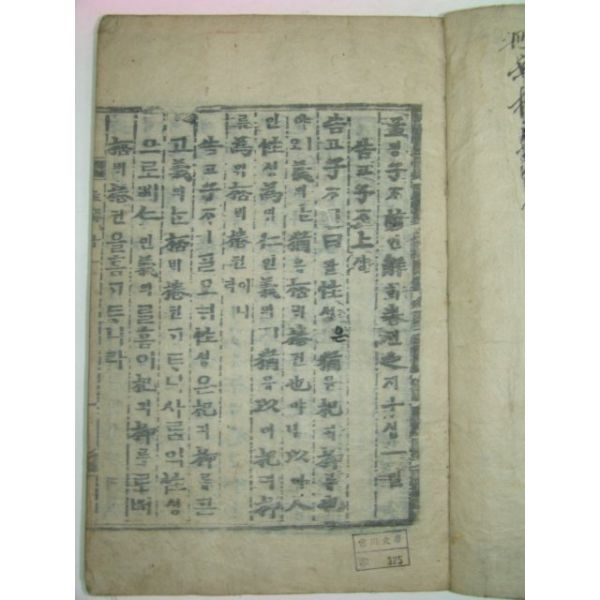 孟ᄆᆡᆼ子ᄌᆞ諺언解ᄒᆡ卷권之지十십一일
告고子ᄌᆞ上샹
告고子ᄌᆞㅣ曰왈性셩은猶유杞긔柳류也
야오義의ᄂᆞᆫ猶유桮ᄇᆡ棬권也야ㅣ니以이人
인性셩爲위仁인義의ㅣ猶유以이杞긔柳
류爲위桮ᄇᆡ棬권이니라
告고子ᄌᆞㅣᄀᆞᆯ오ᄃᆡ性셩은杞긔柳류ᄀᆞᆮ
고義의ᄂᆞᆫ桮ᄇᆡ棬권ᄀᆞᄐᆞ니사ᄅᆞᆷ의性셩
으로ᄡᅥ仁인義의ᄅᆞᆯ홈이杞긔柳류로ᄡᅥ
桮ᄇᆡ棬권을홈ᄀᆞᄐᆞ니라